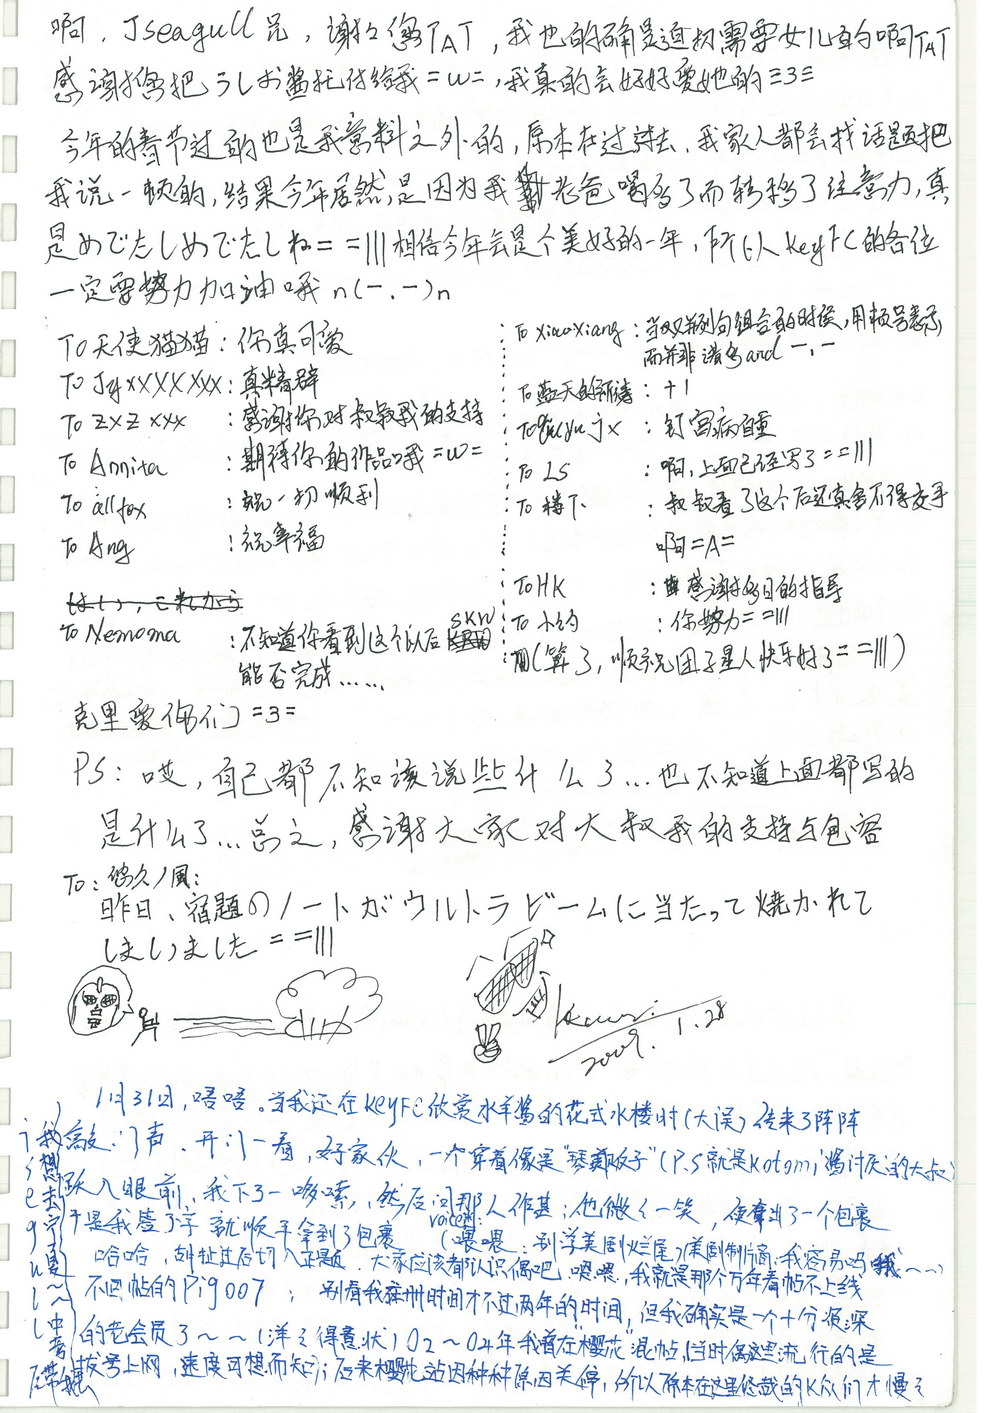 啊，Jseagull兄，谢谢您TAT，我也的确是迫切需要女儿的啊TAT
感谢您把うしお酱托付给我=w=，我真的会好好爱她的=3=
今年的春节过的也是我意料之外的，原本在过去，我家人都会找话题把
我说一顿的，结果今年居然是因为我老爸喝多了而转移了注意力，真
是めでたしめでたしね= =|||相信今年会是个美好的一年，所以KeyFC的各位
一定要努力加油哦 n(一.一)n
To天使猫猫：你真可爱
To JyxXXXXXXX：真精辟
To zxz xxx：感谢你对叔叔我的支持
To Annita：期待你的作品哦=w=
To allfox：祝一切顺利
To Ang：祝幸福
はい，これから
To Nemoma：不知道你看到这个以后SKW
能否完成……
To xiaoxiang：当双并列句组合的时候，用顿号表示
而并非逗号and 一.一
To蓝天的祈祷：+1
jx：钉宫病自重
To LS：啊，上面已经写了= =|||
To 楼下：叔叔看了这个后还真舍不得交手
啊=A=
To HK：感谢多日的指导
To 小约：你努力= =|||
(算了，顺祝团子星人快乐好了= =|||)
克里爱你们=3=
PS：哎，自己都不知该说些什么了…也不知道上面都写的
是什么了…总之，感谢大家对大叔我的支持与包容
To：悠久ノ風：
昨日、宿題のノートがウルトラビームに当たって焼かれて
しまいました= =|||
2009. 1.28
1月31日，唔唔。当我还在KeyFC欣赏水羊酱的花式水楼时(大误)传来了阵阵
敲门声．开门一看，好家伙，一个穿着像是“琴贩子”(P.S就是kotomi酱讨厌的大叔)
跃入眼前，我下了一哆嗦，然后问那人作甚；他微微一笑，便拿出了一个包裹
于是我签了字 就顺手拿到了包裹 (voice: 喂喂：别学美剧烂尾 美剧制片商：我容易吗我~~~)
哈哈，胡扯过后切入正题．大家应该都认识偶吧 嗯嗯，我就是那个万年看帖不上线
不回帖的Pig007；别看我注册时间才不过两年的时间，但我确实是一个十分资深
的老会员了～～(洋洋得意状)02～04年我曾在“樱花”混帖，当时偶这流行的是
拨号上网，速度可想而知；后来樱花站因种种原因关停，所以原本在这里修栽的K众们才慢慢